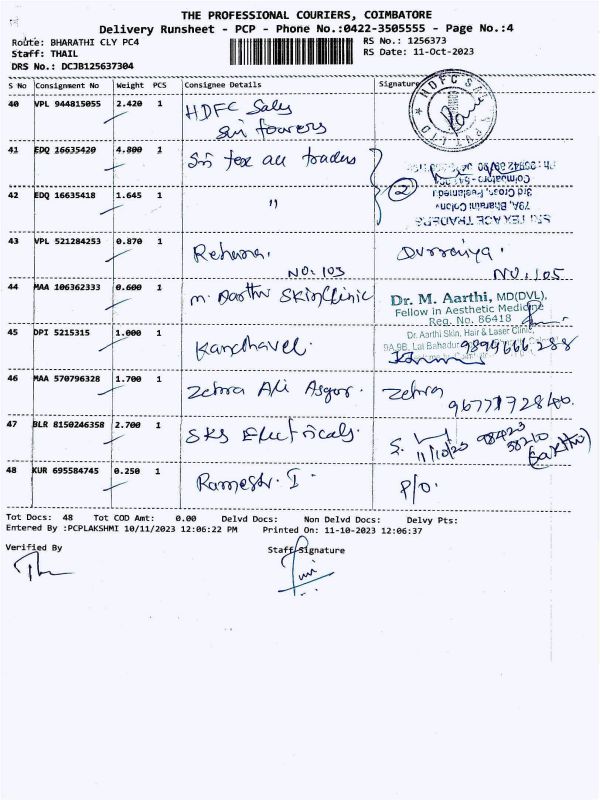 THE PROFESSIONAL COURIERS, COIMBATORE
Delivery Runsheet - PCP - Phone No.:0422-3505555 - Page No.:4
Route: BHARATHI CLY PC4
Staff: THAIL
DRS No.: DCJB125637304
RS No.: 1256373
RS Date: 11-Oct-2023
S No Consignment No Weight PCS Consignee Details Signature
40 VPL 944815055 2.420 1 HDFC Sales
Sri towers
HDFC SA
PVT LTD
41 EDQ 16635420 4.800 1 Sri tex ace traders
42 EDQ 16635418 1.645 1 "
2
SRI TEX ACE TRADERS
79A, Bharathi Colony
3rd Cross, Peelamedu
Coimbatore
43 VPL 521284253 0.870 1 Rehana.
NO. 103
NO. 105
44 MAA 106362333 0.600 1 M. Aarthi Skin Clinic
Dr. M. Aarthi, MD(DVL),
Fellow in Aesthetic Medicine
Reg. No. 86418
Dr. Aarthi Skin, Hair & Laser Clinic,
9A,9B, Lal Bahadur
45 DPI 5215315 1.000 1 Kandhavel.
46 MAA 570796328 1.700 1 Zehra Ali Asgar. Zehra
9677172840.
47 BLR 8150246358 2.700 1 SKS Electricals. S.
11/10/23
98423
58210
48 KUR 695584745 0.250 1 Ramesh. I. P/O.
Tot Docs: 48 Tot COD Amt: 0.00 Delvd Docs: Non Delvd Docs: Delvy Pts:
Entered By :PCPLAKSHMI 10/11/2023 12:06:22 PM Printed On: 11-10-2023 12:06:37
Verified By Staff Signature